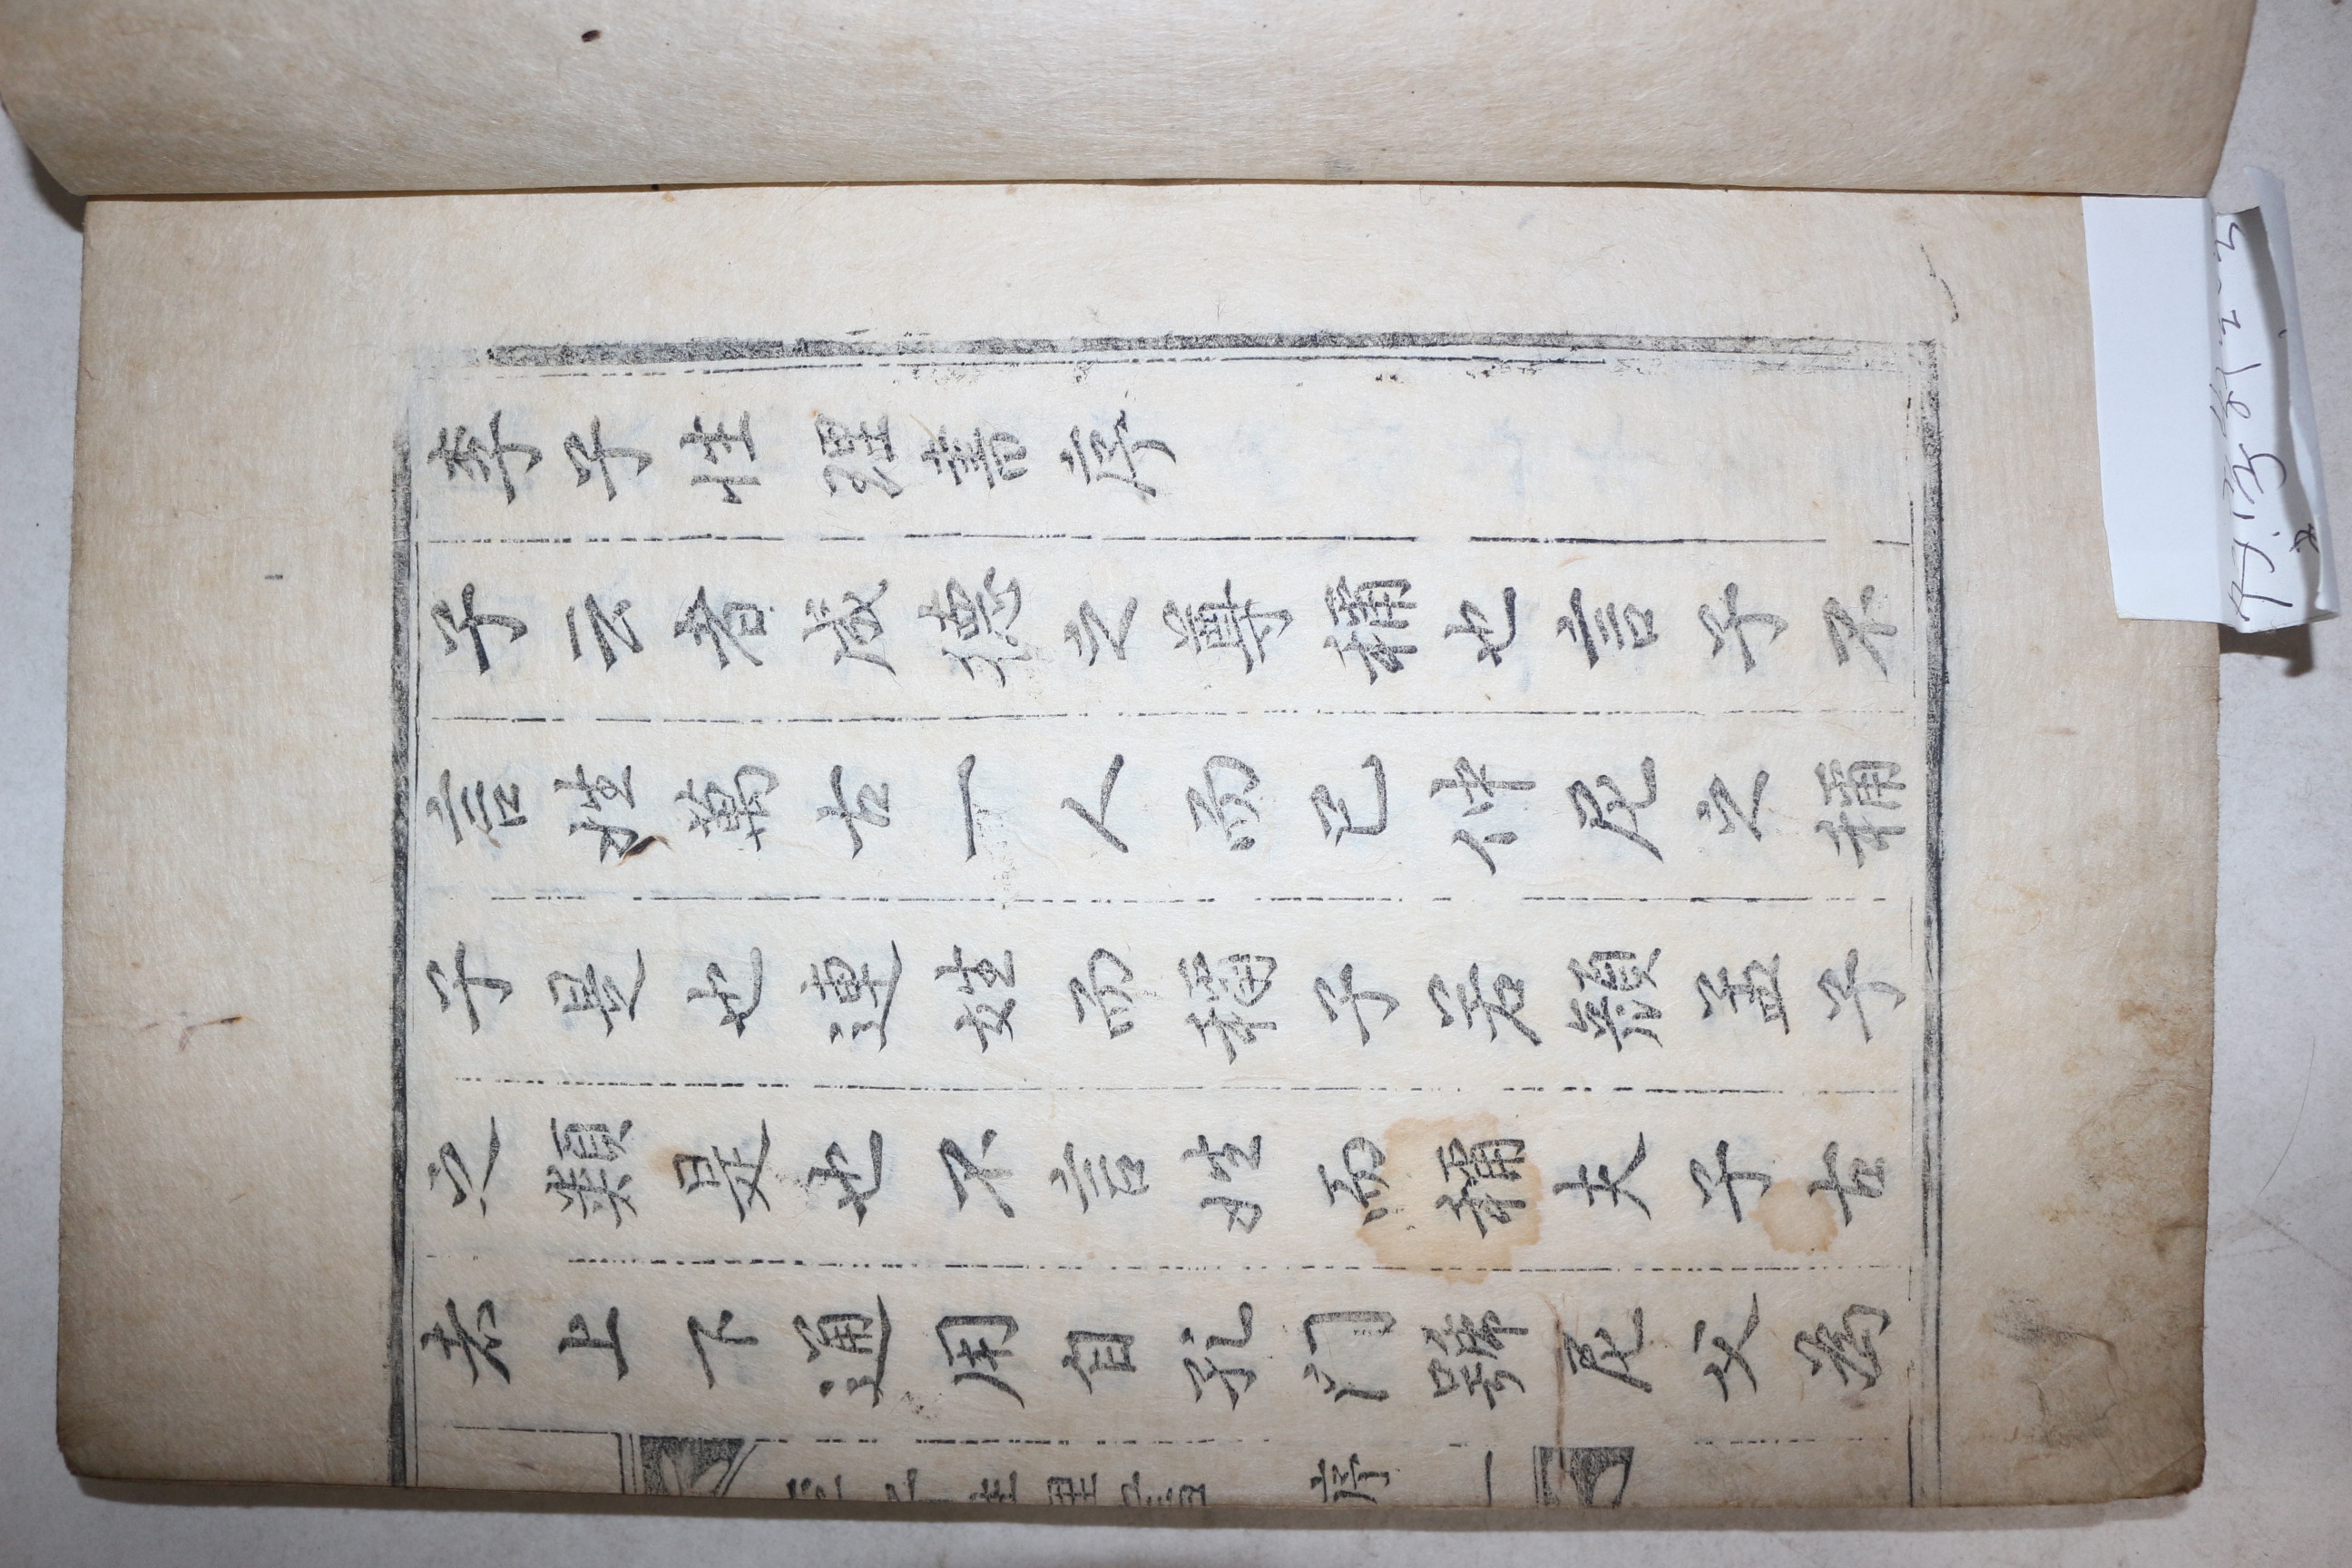 李子性理書序
子云者成德之尊稱也言子不
言姓萬古一人而已仲尼之稱
子是也連姓而稱子若顔孟子
之類是也不言姓而稱夫子古
者上下通用自孔門歸尼父爲
序 一